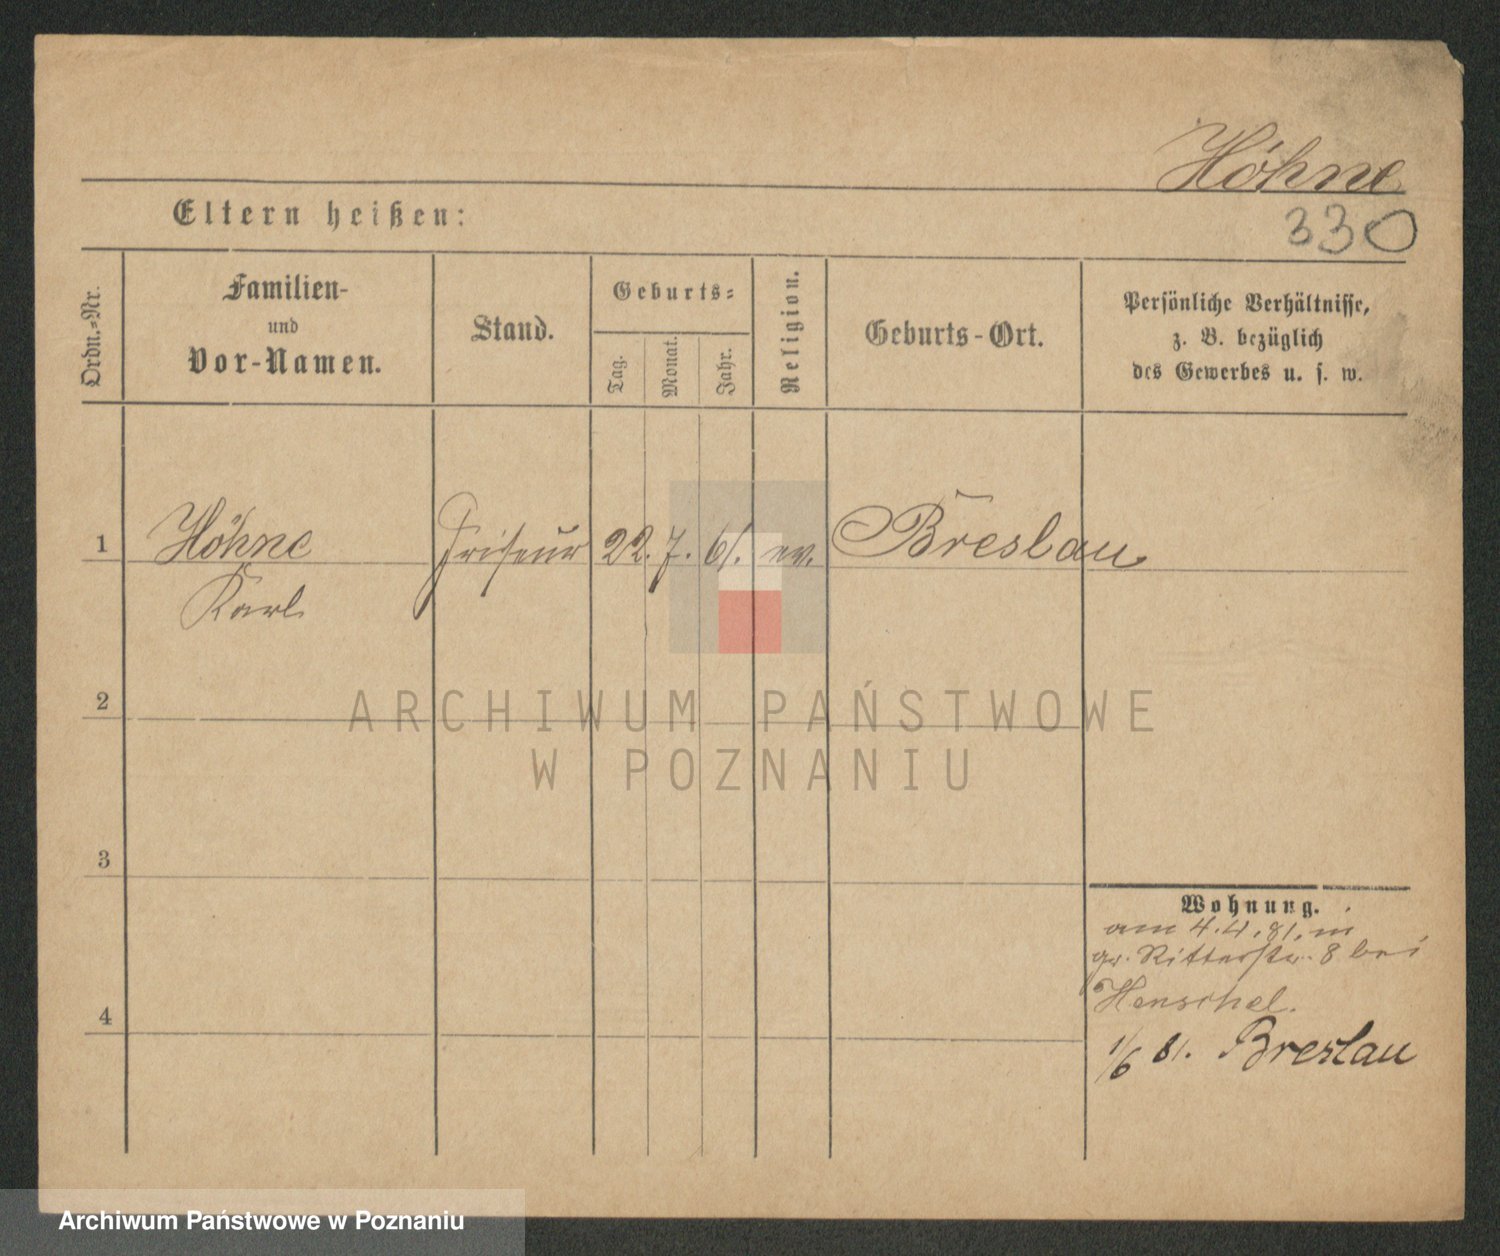 Höhne
Eltern heißen:
330
Ordn.=Nr.
Familien-
und
Vor-Namen.
Stand.
Geburts=
Tag.
Monat.
Jahr.
Religion.
Geburts-Ort.
Persönliche Verhältnisse,
z. B. bezüglich
des Gewerbes u. s. w.
1
Höhne
Karl
Friseur
22.
7.
61.
ev.
Breslau
2
ARCHIWUM PAŃSTWOWE
W POZNANIU
3
Wohnung.
am 4.4.81. in
gr. Ritterstr. 8 bei
Henschel.
4
1/6 81. Breslau
Archiwum Państwowe w Poznaniu